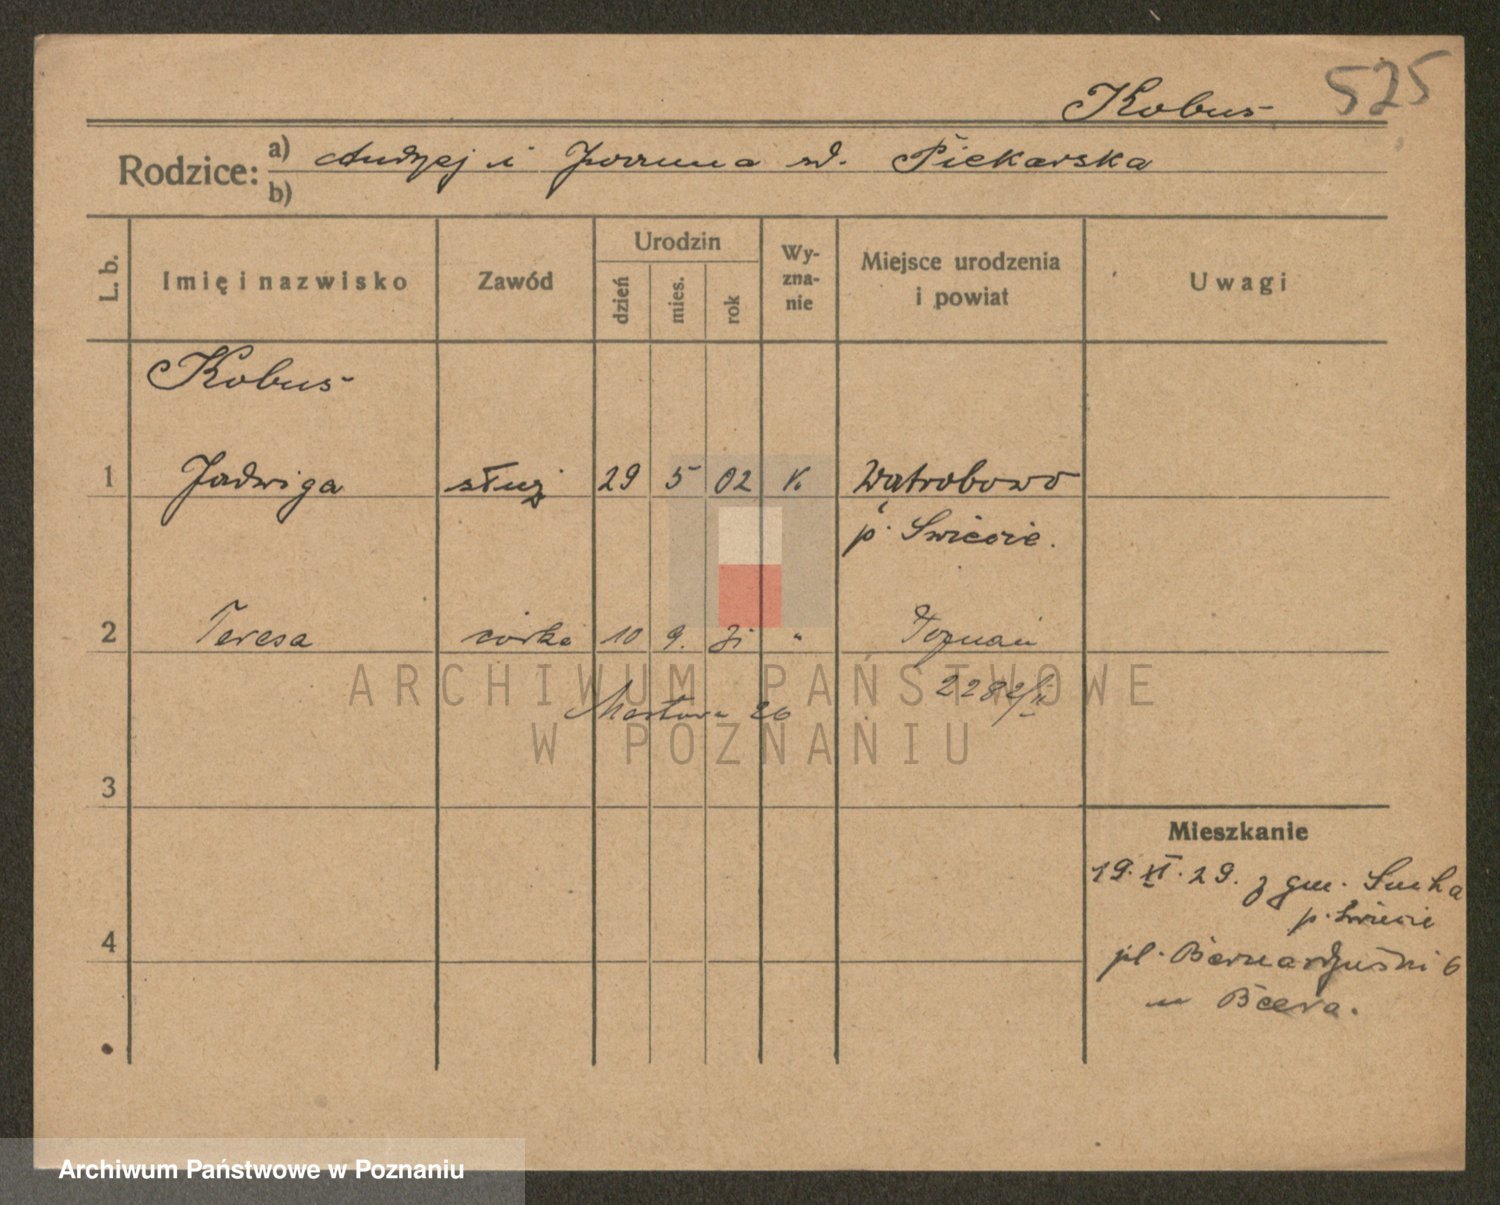 Kobus 525
Rodzice: a) Andrzej i Joanna zd. Piekarska
b)
L. b. Imię i nazwisko Zawód Urodzin dzień mies. rok Wyznanie Miejsce urodzenia i powiat Uwagi
Kobus
1 Jadwiga służ 29 5 02 k. Wątrobowo
p. Świecie.
2 Teresa córka 10 9. 31 " Poznań
2282/II
26
3
Mieszkanie
19. XI. 29. z gm. Sucha
p. Świecie
4
pl. Bernardyński 6
u
ARCHIWUM PAŃSTWOWE
W POZNANIU
Archiwum Państwowe w Poznaniu